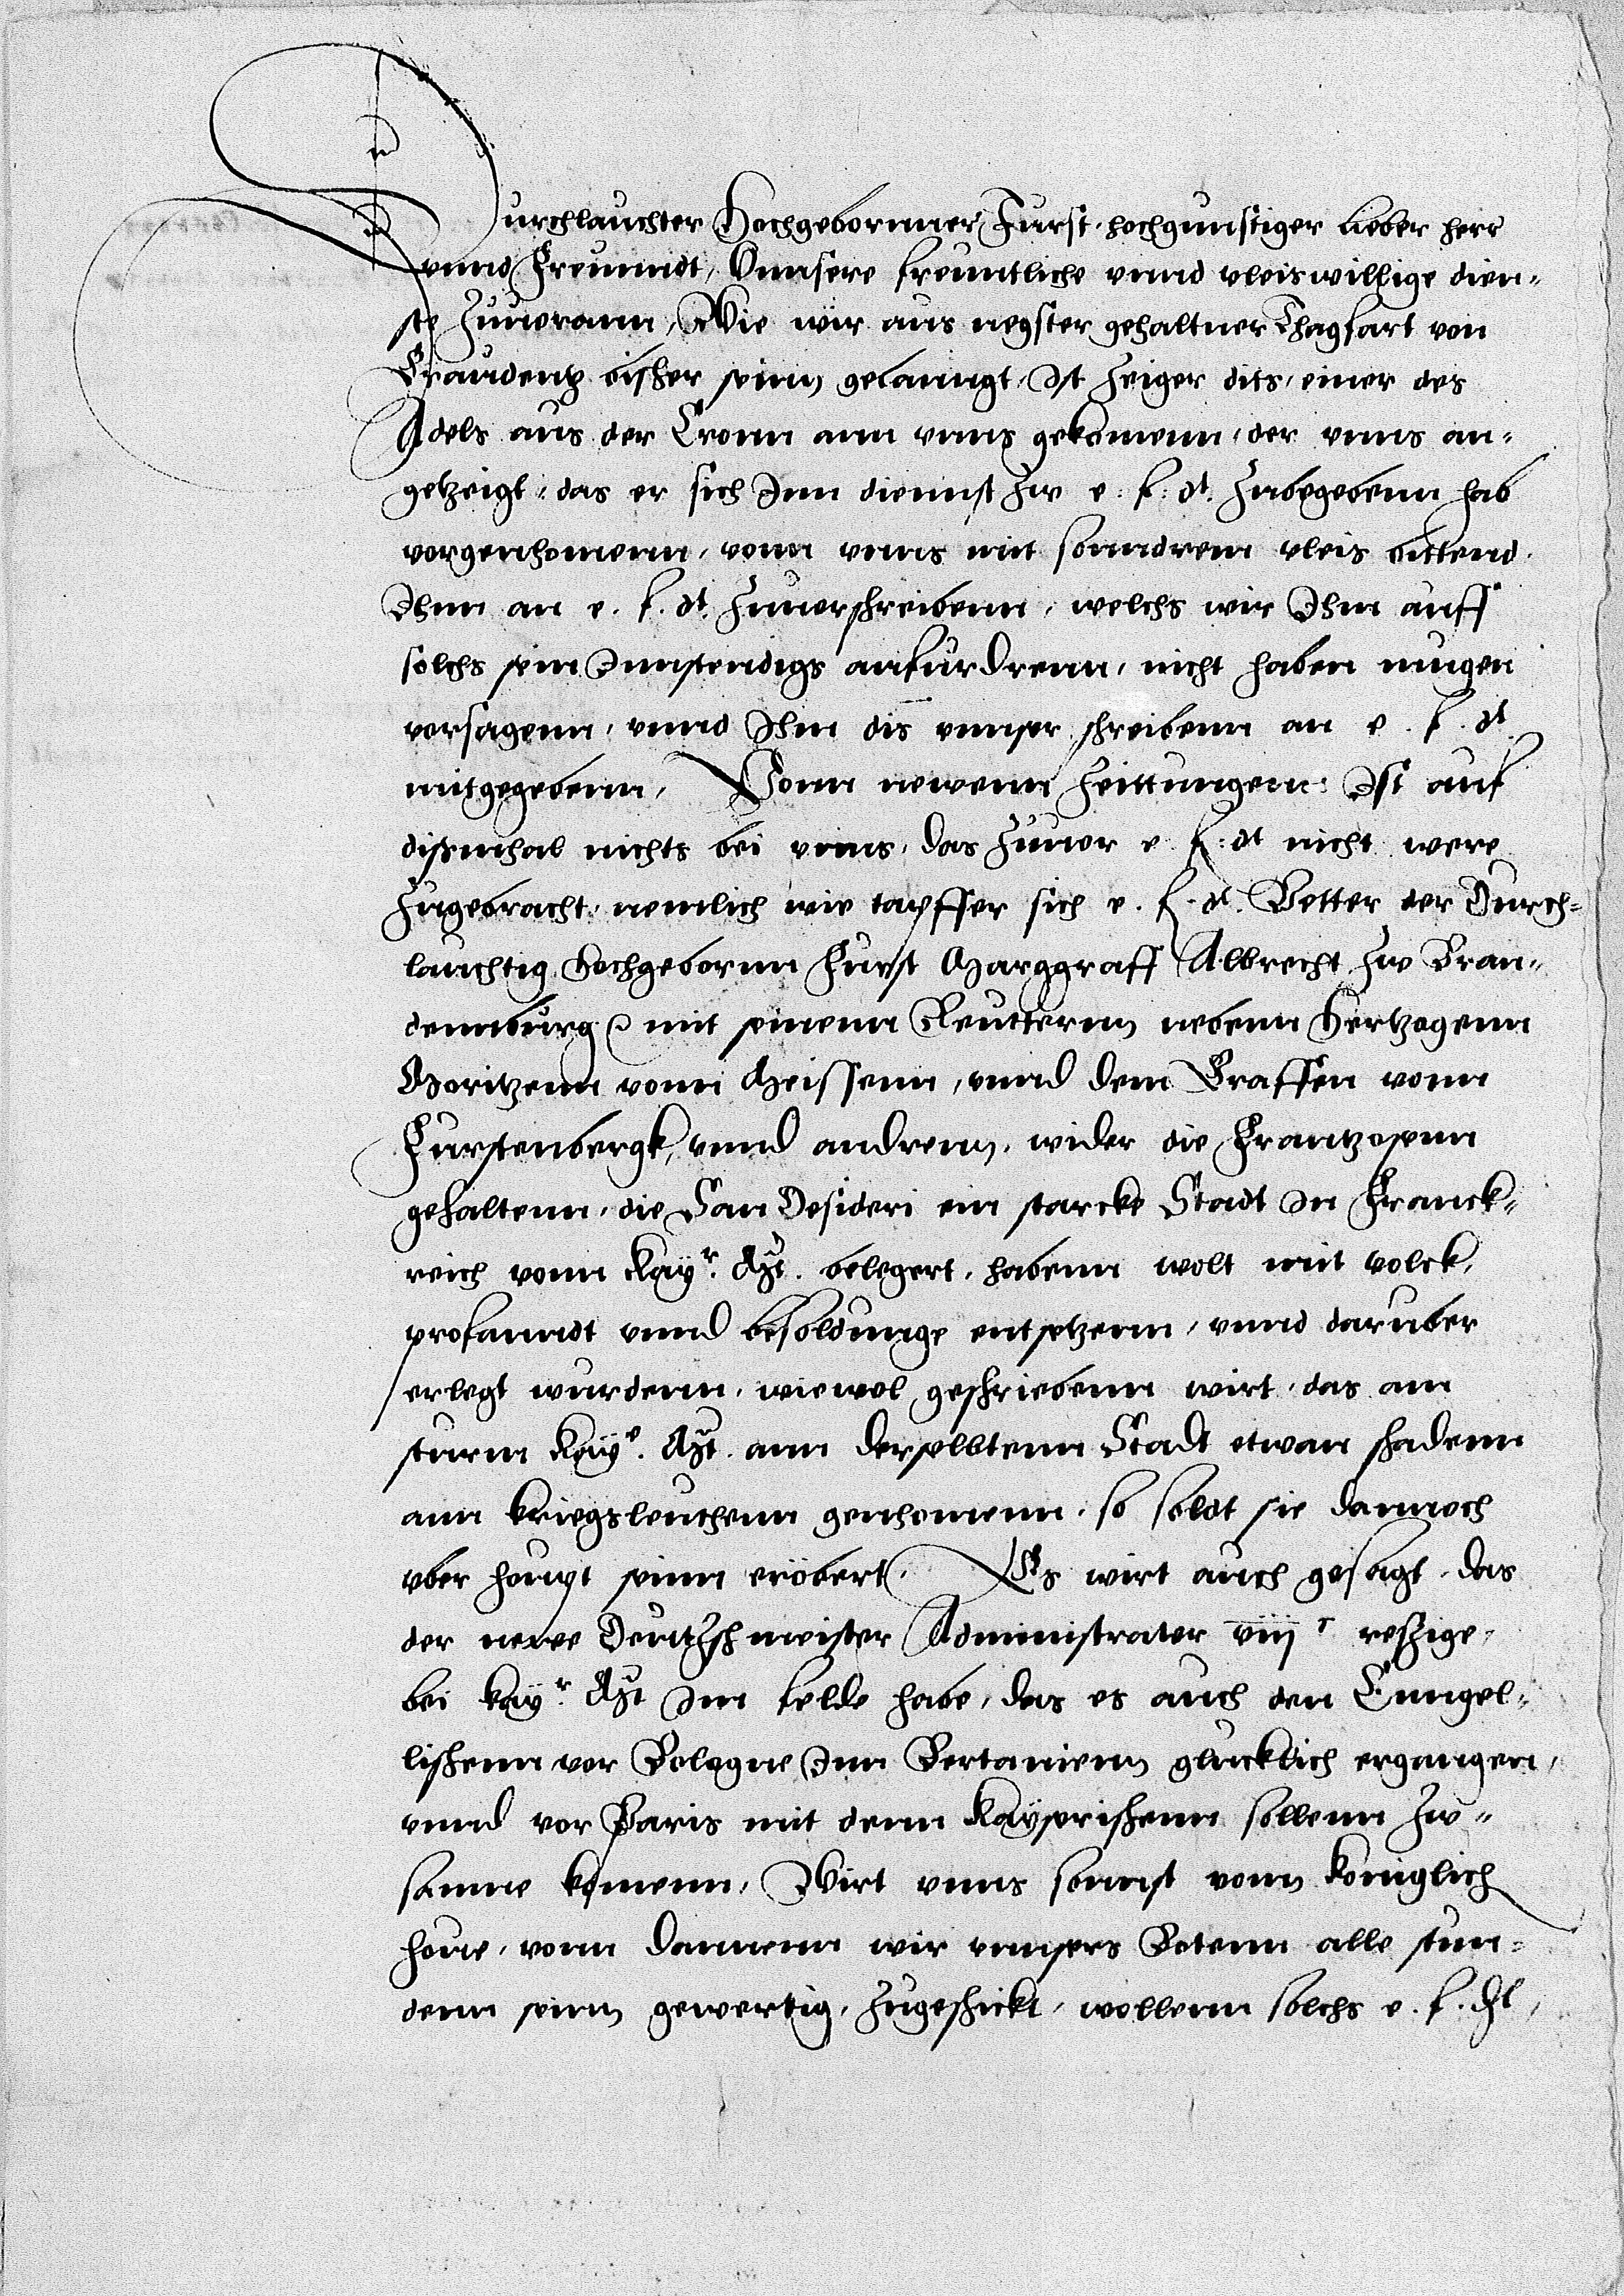 Durchlauchter Hochgebornner Furst hochgunstiger lieber herr
vnnd Freunndt, Vnnsere freuntliche vnnd vleiswillige dien-
ste Zuuorann, Wie wir aus negster gehaltner Thagfart von
Graudentz bisher seinn gelanngt, Ist Zeiger dits, einer des
Adels aus der Cronn ann vnns gekomenn, der vnns an-
getzeigt, das er sich Inn diennst Zw e. f. dt. Zubegebenn hab
vorgenhomenn, vonn vnns mit sonndrem vleis bittend
Ihnn an e. f. dt. Zuuorschreibenn, welchs wir Ihm auff
solchs sein Innstendigs anfurdrenn, nicht haben mugen
versagenn, vnnd Ihm dis vnnser schreibenn an e. f. dt
mitgegebenn, Vonn newenn Zeittungen Ist auf
disßmhal nichts bei vnns, das Zuuor e. f. dt nicht were
Zugebracht, nemlich wie tapffer sich e. f. dt. Vetter der Durch-
lauchtig Hochgebornn Furst Marggraff Albrecht Zw Bran-
dennburg mit seinenn Reutternn nebenn Hertzogenn
Moritzenn vonn Meissenn, vnnd dem Graffen vonn
Furstenbergk, vnnd andrenn, wider die Frantzosenn
gehaltenn, die San Desideri ein starcke Stadt in Franck-
reich vonn Kayr. Mt. belegert, habenn wolt mit volck,
profanndt vnnd besoldunge entsetzenn, vnnd daruber
erlegt wurdenn, wiewol geschriebenn wirt, das am
sturm Kaye. Mt. ann derselbtenn Stadt etwan schadenn
ann kriegsleuthenn genhomenn, so soldt sie dannoch
vber houpt seinn eröbert. Es wirt auch gesagt, das
der newe Deutzschmeister Administrator viij reszige
bei kayr. Mt Im felde habe, das es auch den Enngel-
lischenn vor Bologne Inn Bertanienn glucklich ergangen,
vnnd vor Paris mit denn Kayserischenn sollenn Zw-
samne komenn, Wirt vnns sonnst vonn koniglich
houe, vonn dannenn wir vnnsers Botenn alle stun-
denn seinn gewertig, Zugeschickt, wollenn solchs e. f. dt,